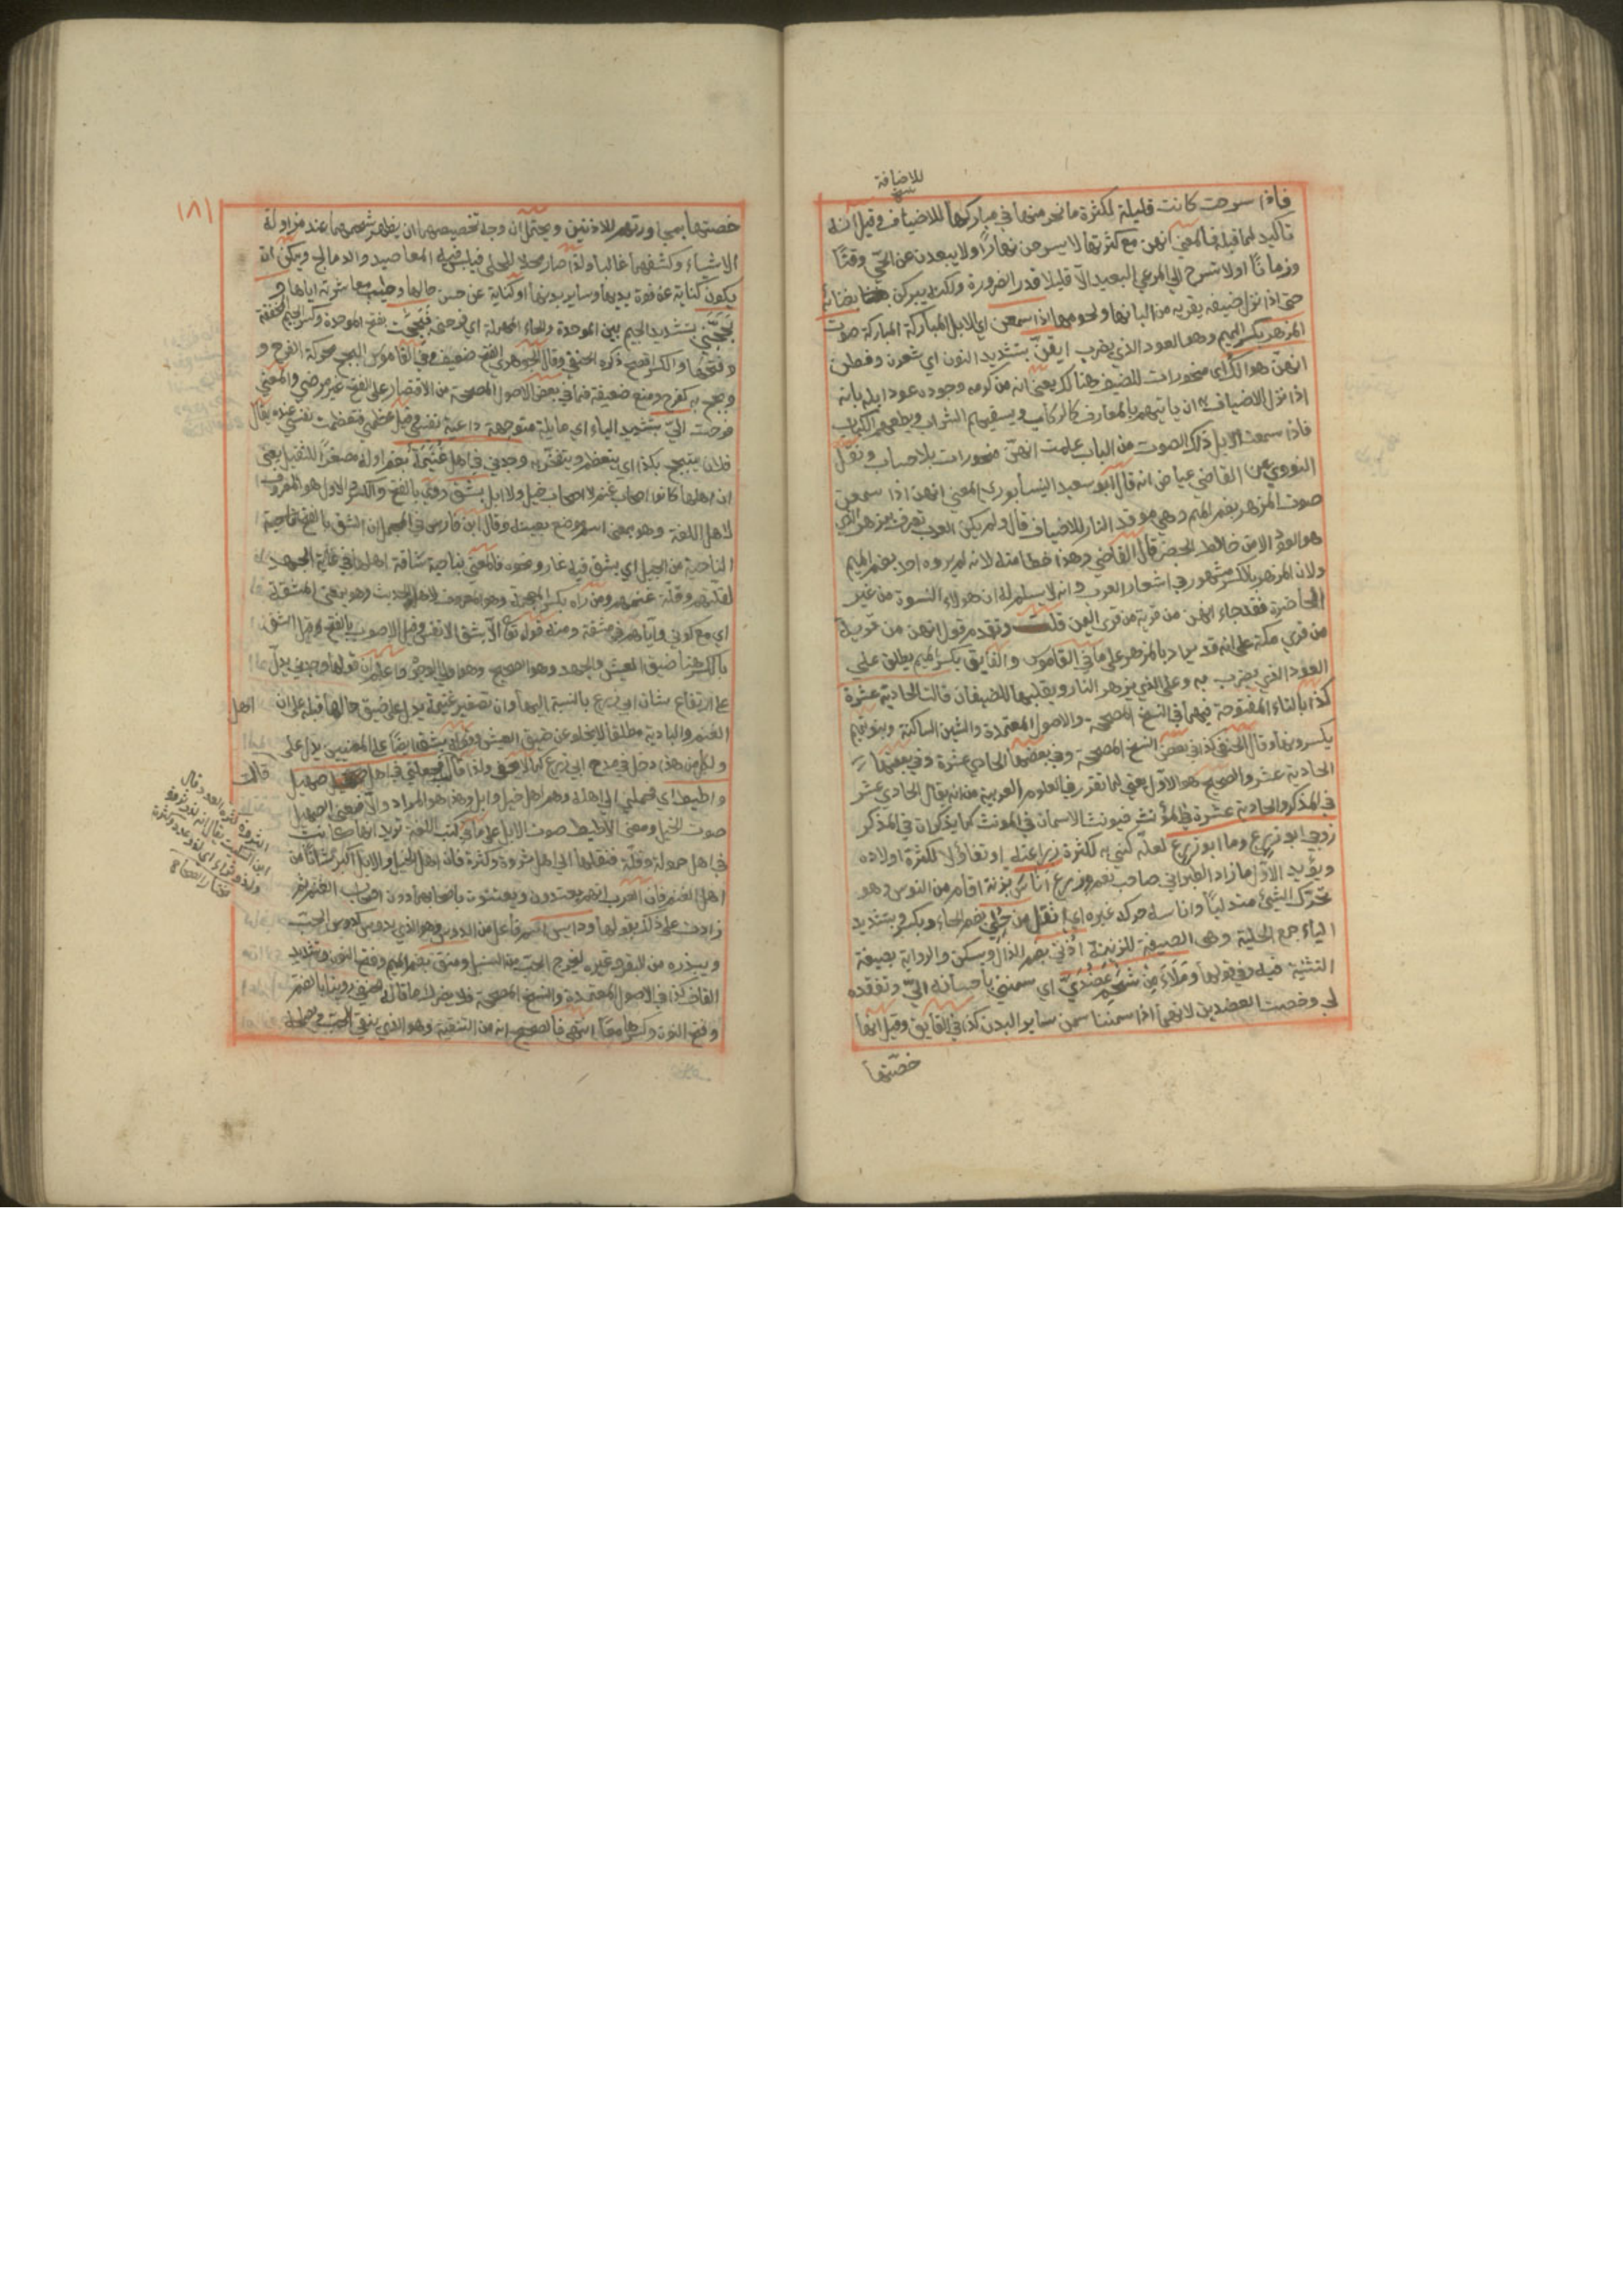 للاضافة
فاذا سرحت كانت قليلة لكثرة ما نحر منها في مباركها للاضياف وقيل انه
تاكيد لما قبله فالمعني انهن مع كثرتها لا يسرحن نهارا ولا يبعدن عن الحي وقتا
وزمانا او لا تسرح الي المرعي البعيد الا قليلا قدر الضرورة ولكنه يبركن بفنائه
حتى اذا نزل ضيف يقريه من البانها ولحومها اذا سمعن اي الابل المباركة صوت
المزهر بكسر الميم وهو العود الذي يضرب ايقن بتشديد النون اي شعرن وفطن
انهن هوالك اي منحورات للضيف هنالك يعني انه من كرمه وجوده عود ابله بانه
اذا نزل الاضياف به ان ياتيهم بالمعازف كالركاب ويسقيهم الشراب ويطعمهم الكباب
فاذا سمعت الابل ذلك الصوت من الباب علمت انهن منحورات بلا حساب ونقل
النووي عن القاضي عياض انه قال ابو سعيد النيسابوري المعني انهن اذا سمعن
صوت المزهر بضم الميم وهي موقد النار للاضياف قال ولم يكن العرب تعرف المزهر الذي
هو العود الا من خالط الحضر قال القاضي وهذا خطا منه لانه لم يروه احد بضم الميم
ولان المزهر بالكسر مشهور في اشعار العرب وانه لا يسلم له ان هولاء النسوة من غير
الحاضرة فقد جاء انهن من قرية من قرى اليمن قلت وتقدم قول انهن من قرية
من قرى مكة على انه قد يراد بالمزهر على ما في القاموس والفايق بكسر الميم يطلق على
العود الذي يضرب به وعلى الذي يزهر النار ويقلبها للضيفان قالت الحادية عشرة
كذا بالتاء المفتوحة فيهما في النسخ المصححة والاصول المعتمدة والشين الساكنة وبنو تميم
يكسرونها وقال الحنفي كذا في بعض النسخ المصححة وفي بعضها الحادي عشرة وفي بعضها
الحادية عشر والصحيح هو الاول يعني لما تقرر في العلوم العربية من انه يقال الحادي عشر
في المذكر والحادية عشرة في المؤنث فيونث الاسمان في المونث كما يذكران في المذكر
زوجي ابو زرع وما ابو زرع لعله كني به لكثرة زراعته او تفاؤلا لكثرة اولاده
ويؤيد الاول ما زاد الطبراني صاحب نعم وزرع اناس بزنة اقام من النوس وهو
تحرك الشيئ متدليا واناسه حركه غيره اي اثقل من حلي بضم الحاء ويكسر وبتشديد
الياء جمع الحلية وهي الصيغة للزينة اذني بضم الذال ويسكن والرواية بصيغة
التثنية فيه وفي قولها وملاء من شحم عضدي اي سمنني باحسانه الي وتفقده
لي وخصت العضدين لانهما اذا سمنتا سمن ساير البدن كذا في الفايق وقيل انما
خصتها
١٨١
خصتها بمجاورتهم للاذنين ويحتمل ان وجه تخصيصهما ان يظهر شحمهما عند مزاولة
الاشياء وكشفهما غالبا ولذا صار محلا للحلي فيلبس فيه المعاضيد والدمالج ويمكن ان
يكون كناية عن قوة يديها وساير بدنها او كناية عن حسن حالها وطيب معاشرته اياها و
بجحني بتشديد الجيم بين الموحدة والحاء المهملة اي فرحني فبجحت بفتح الموحدة وكسر الجيم المخففة
وفتحها والكسر افصح ذكره الحنفي وقال الجوهري الفتح ضعيف وفي القاموس البجح محركة الفرح و
وبجح به كفرح ومنع ضعيفة فما في بعض الاصول المصححة من الاقتصار على الفتح غير مرضي والمعني
فرحت الي بتشديد الياء اي مايلة متوجهة داعية نفسي وقيل عظمني فعظمت نفسي عنده يقال
فلان يتبجح بكذا اي يتعظم ويفتخر به وجدني في اهل غنيمة بضم اوله مصغرا للتقليل يعني
ان اهلها كانوا اصحاب غنم لا اصحاب خيل ولا ابل بشق روي بالفتح والكسر والاول هو المعروف
لاهل اللغة وهو بمعنى اسم موضع بعينه وقال ابن فارس في المجمل ان الشق بالفتح الناحية
الناحية من الجبل اي بشق فيه غار ونحوه فالمعني بناحية شاقة اهلها في غاية الجهد
لقلتهم وقلة غنمهم ومن رواه بكسر المعجمة وهو المعروف لاهل الحديث وهو بمعنى المشقة
اي مع كوني واياهم في مشقة ومنه قوله تعالى الا بشق الانفس وقيل الاصوب بالفتح وقيل الشق
بالكسر هنا ضيق العيش والجهد وهو الصحيح وهو اولي الوجوه واعلم ان قولها وجدني يدل
على ارتفاع شان ابي زرع بالنسبة اليها وان تصغير غنيمة يدل على ضيق حالها قبله على ان اهل
الغنم والبادية مطلقا لا يخلو عن ضيق العيش وقوله بشق ايضا على المعنيين يدل على
ولكل من هذا دخل في مدح ابي زرع كما لا يخفي ولذا قالت فجعلني في اهل صهيل
واطيط اي فحملني الي اهله وهم اهل خيل وابل وهذا هو المراد والا فمعني الصهيل
صوت الخيل ومعنى الاطيط صوت الابل على ما في كتب اللغة تريد انها كانت
في اهل حمولة وقلة فنقلها الي اهل ثروة وكثرة فان اهل الخيل والابل اكبر شانا من
اهل الغنم فان العرب انهم يعتدون ويعتنون باصحابهما دون اصحاب الغنم ثم
زادت على ذلك بقولها ودايس اسم فاعل من الدوس وهو الذي يدوس كدوس الحب
ويبذره من البقر وغيره ليخرج الحب من السنبل ومنق بضم الميم وفتح النون وتشديد
القاف كذا في الاصول المعتمدة والنسخ المصححة فلا يضر ما قاله الحنفي روينا بالضم
وفتح النون وكسرها معا انتهى فالصحيح انه من التنقية وهو الذي ينقي الحب
قالت
الثروة كثرة العدد قال
ابن السكيت يقال انه لذو ثروة
وذو ثراء اي لذو عدد وكثرة
مختار الصحاح